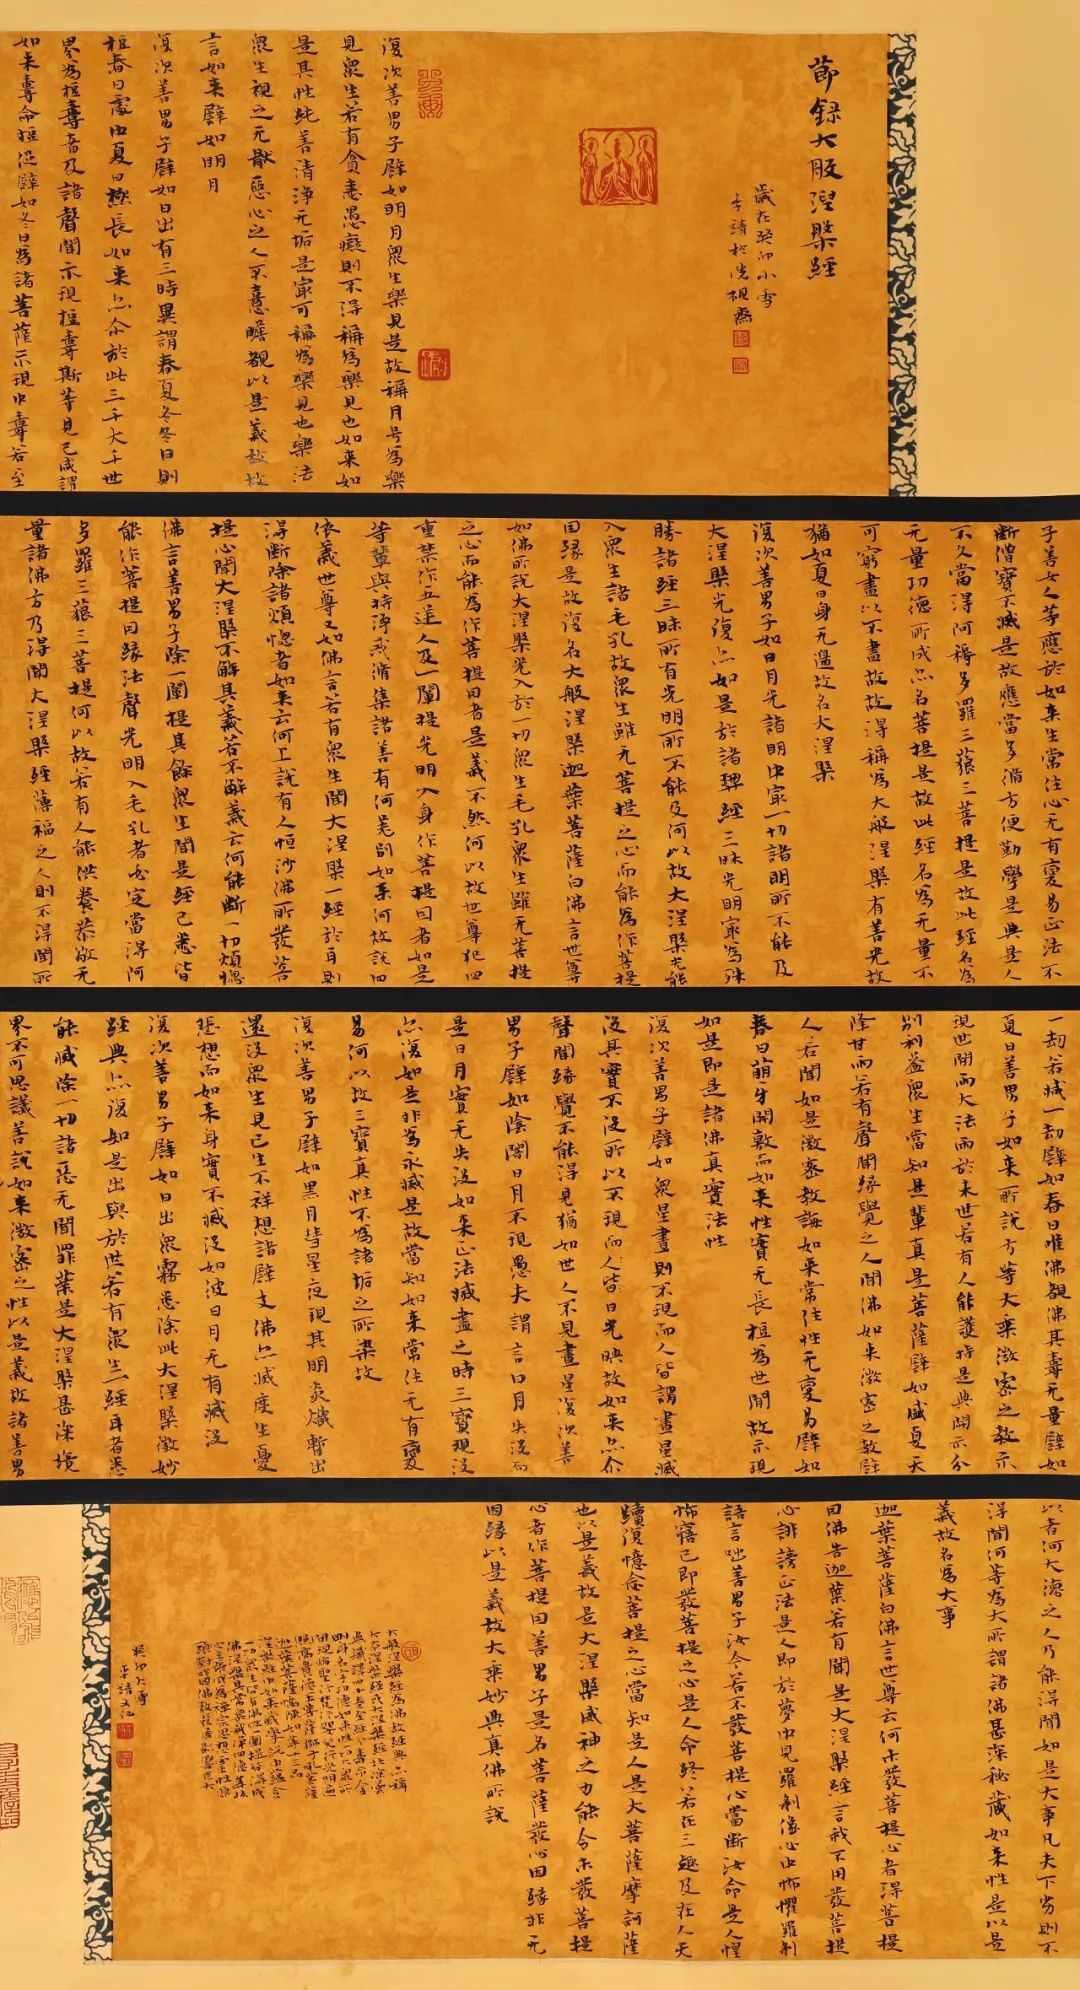 節録大般涅槃經
歲在癸卯小雪
李靖於洗硯齋
復次善男子譬如明月衆生樂見是故稱月号為樂
見衆生若有貪恚愚癡則不得稱為樂見也如來如
是其性純善清淨无垢是冣可稱為樂見也樂法
衆生視之无猒惡心之人不憙瞻覩以是義故故
言如來譬如明月
復次善男子譬如日出有三時異謂春夏冬冬日則
短春日處中夏日極長如來亦尒於此三千大千世
界為短壽者及諸聲聞示現短壽斯等見已咸謂
如來壽命短促譬如冬日為諸菩薩示現中壽若至
一劫若減一劫譬如春日唯佛覩佛其壽无量譬如
夏日善男子如來所說方等大乘微密之教示
現世間雨大法雨於未世若有人能護持是典開示分
别利益衆生當知是輩真是菩薩譬如盛夏天
降甘雨若有聲聞緣覺之人聞佛如來微密之教譬
人若聞如是微密教誨如來常住性无變易譬如
春日萌牙開敷而如來性實无長短為世間故示現
如是即是諸佛真實法性
復次善男子譬如衆星晝則不現而人皆謂晝星滅
没其實不没所以不現而人皆日光映故如來亦尒
聲聞緣覺不能得見猶如世人不見晝星復次善
男子譬如陰闇日月不現愚夫謂言日月失没而
是日月實无失没如來正法滅盡之時三寶現没
亦復如是非為永滅是故當知如來常住无有變
易何以故三寶真性不為諸垢之所染故
復次善男子譬如黑月彗星夜現其明炎熾暫出
還没衆生見已生不祥想諸辟支佛亦滅度生憂
悲想而如來身實不滅没如彼日月无有滅没
復次善男子譬如日出衆霧悉除此大涅槃微妙
經典亦復如是出興於世若有衆生一經耳者悉
能滅除一切諸惡无間罪業是大涅槃甚深境
界不可思議善說如來微密之性以是義故諸善男
子善女人等應於如來生常住心无有變易正法不
斷僧寶不滅是故應當多脩方便勤學是典是人
不久當得阿耨多羅三藐三菩提是故此經名為
无量功德所成亦名菩提是故此經名為无量不
可窮盡以不盡故故得稱為大般涅槃有善光故
猶如夏日身无邊故名大涅槃
復次善男子如日月光諸明中冣一切諸明所不能及
大涅槃光復亦如是於諸契經三昧光明冣為殊
勝諸經三昧所有光明所不能及何以故大涅槃光能
入衆生諸毛孔故衆生雖无菩提之心而能為作菩提
因緣是故復名大般涅槃迦葉菩薩白佛言世尊
如佛所說大涅槃光入於一切衆生毛孔衆生雖无菩提
之心而能為作菩提因者是義不然何以故世尊犯四
重禁作五逆人及一闡提光明入身作菩提因者如是
等輩與持淨戒脩集諸善有何差别如來何故說四
依義世尊又如佛言若有衆生聞大涅槃一經於耳則
得斷除諸煩惱者如來云何上說有人恒沙佛所發菩
提心聞大涅槃不解其義若不解義云何能斷一切煩惱
佛言善男子除一闡提其餘衆生聞是經已悉皆
能作菩提因緣法聲光明入毛孔者必定當得阿
多羅三藐三菩提何以故若有人能供養恭敬无
量諸佛方乃得聞大涅槃經薄福之人則不得聞所
以者何大德之人乃能得聞如是大事凡夫下劣則不
得聞何等為大所謂諸佛甚深秘藏如來性是以是
義故名為大事
迦葉菩薩白佛言世尊云何未發菩提心者得菩提
因佛告迦葉若有聞是大涅槃經言我不用發菩提
心誹謗正法是人即於夢中見羅刹像心中怖懼羅刹
語言咄善男子汝今若不發菩提心當斷汝命是人惶
怖寤已即發菩提之心是人命終若在三趣及在人天
續復憶念菩提之心當知是人是大菩薩摩訶薩
也以是義故是大涅槃威神之力能令未發菩提
心者作菩提因善男子是名菩薩發心因緣非无
因緣以是義故大乘妙典真佛所說
癸卯小雪
李靖又記